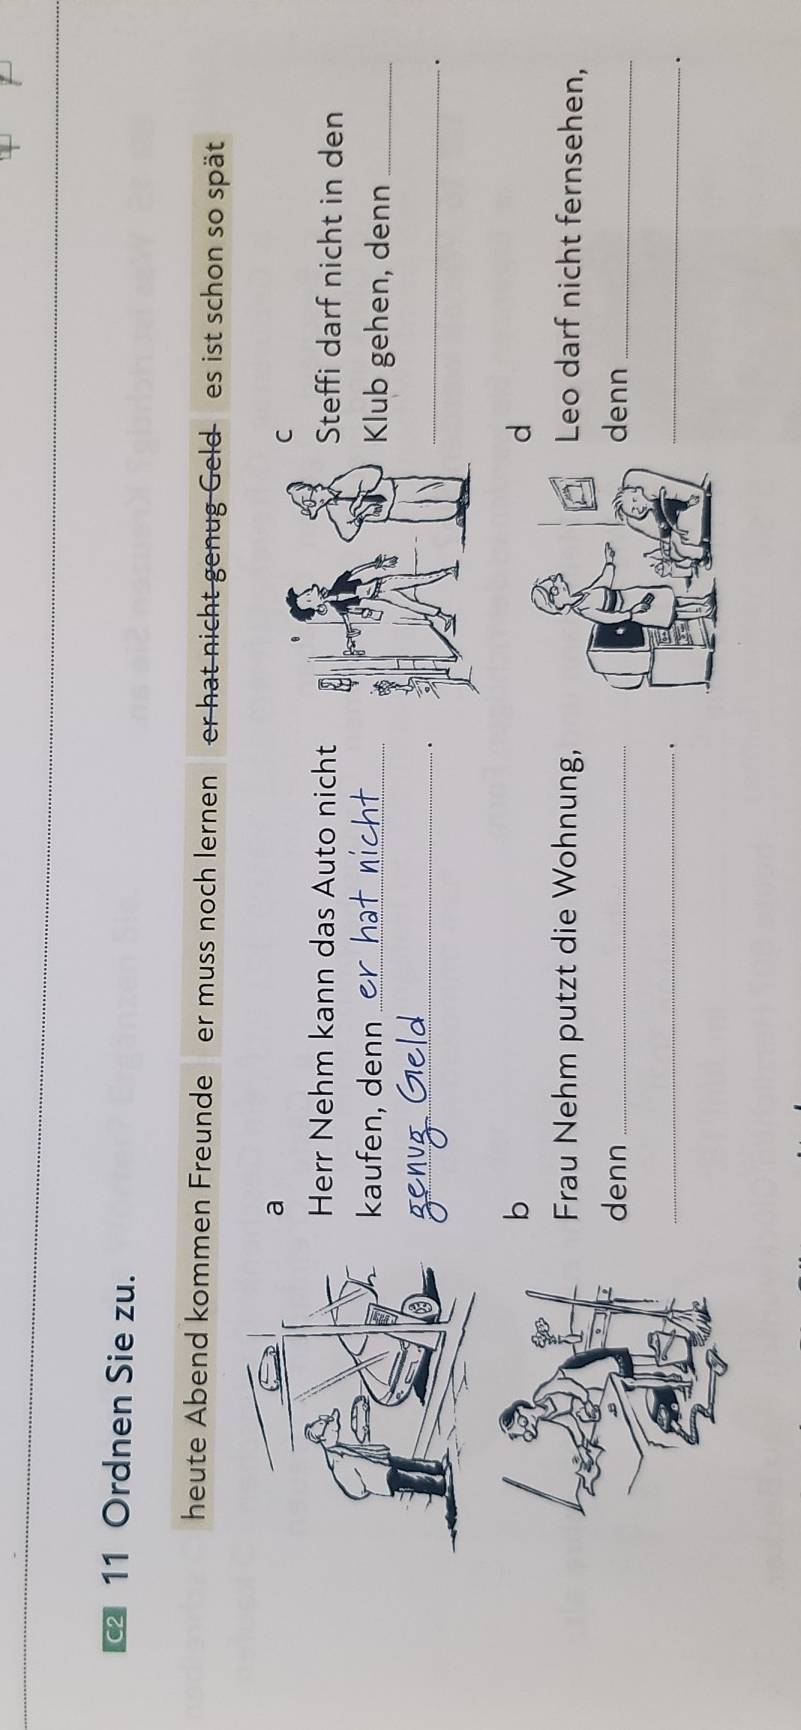 C2 11 Ordnen Sie zu.
heute Abend kommen Freunde er muss noch lernen er hat nicht genug Geld es ist schon so spät
a
Herr Nehm kann das Auto nicht
kaufen, denn er hat nicht
genug Geld.
b
Frau Nehm putzt die Wohnung,
denn
.
c
Steffi darf nicht in den
Klub gehen, denn
.
d
Leo darf nicht fernsehen,
denn
.